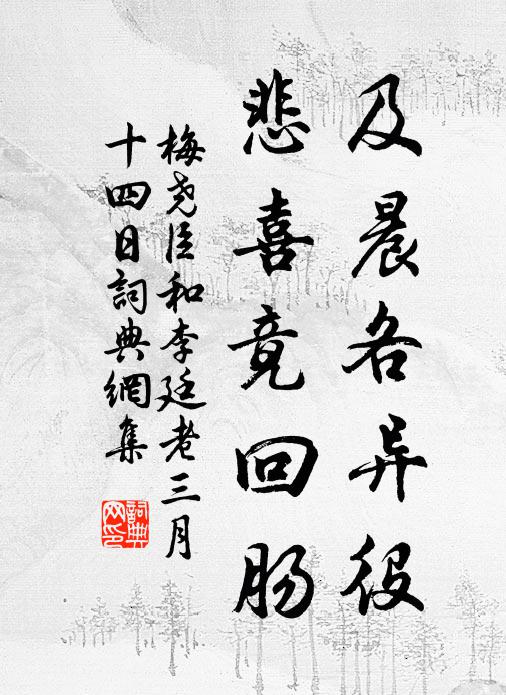 及晨各异役
悲喜竟回肠
梅尧臣和李廷老三月
十四日詞典網集
詞典
网印